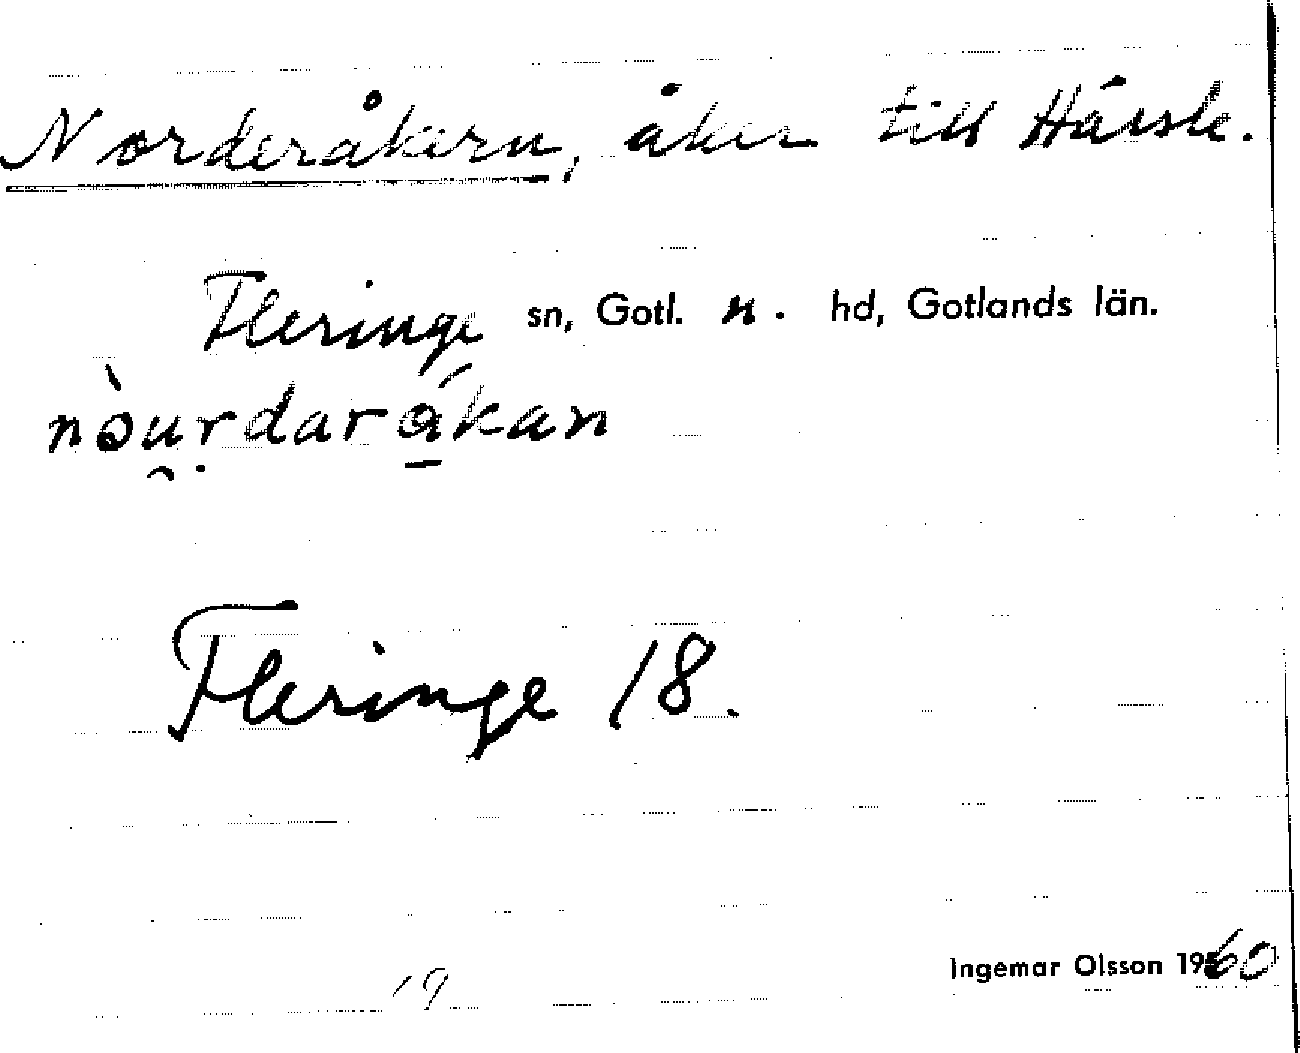 Norderåkern, åker till Hässle.
Fleringe sn, Gotl. n. hd, Gotlands län.
nòu̯ṛdará̱kan
Fleringe 18.
Ingemar Olsson 1960
19